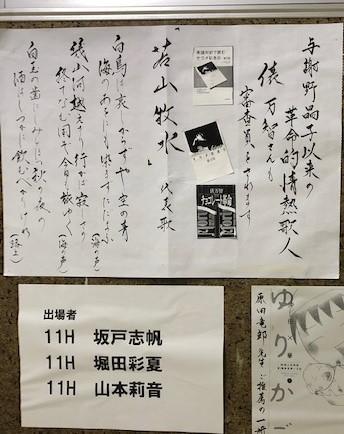 与謝野晶子以来の
革命的情熱歌人
俵万智さんも
審査員をされます
「若山牧水」代表歌
白鳥は哀しからずや空の青
海のあをにも染まずただよふ
(海の声)
幾山河越えさり行かば寂しさの
終てなむ国ぞ今日も旅ゆく
(海の声)
白玉の歯にしみとほる秋の夜の
酒はしづかに飲むべかりけれ
(路上)
俵万智
チョコレート革命
出場者
11H 坂戸志帆
11H 堀田彩夏
11H 山本莉音
ゆりかご
原田竜郎先生ご推薦の一冊